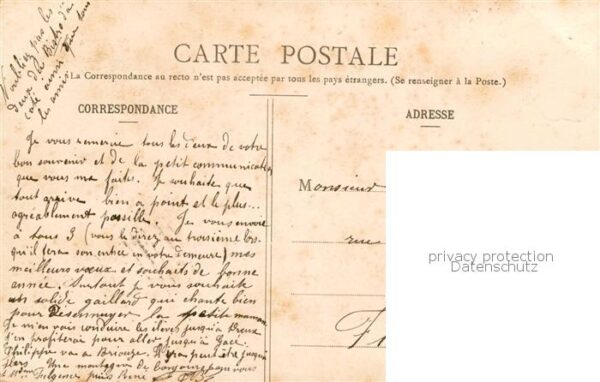 N'oubliez pas les
deux du Bistro d'à
côté ainsi que tous
les amis
CARTE POSTALE
La Correspondance au recto n'est pas acceptée par tous les pays étrangers. (Se renseigner à la Poste.)
CORRESPONDANCE
ADRESSE
Je vous remercie tous les deux de votre
bon souvenir et de la petit communication
que vous me faites. Je souhaite que
tout arrive bien à point et le plus...
agréablement possible. Je vous envoie
à tous 3 (vous le direz au troisième lors-
qu'il fera son entrée en votre demeure) mes
meilleurs vœux et souhaits de bonne
année. Surtout je vous souhaite
un solide gaillard qui chante bien
pour Désennuyer la petite maman
Je m'en vais conduire les élèves jusqu'à Dreux
J'en profiterai pour aller jusqu'à Gacé.
Philippe va à Briouze. Il ira peut être jusqu'à
Flers. Une montagne de pour vous
Fulgence puis René
Monsieur
rue
privacy protection
Datenschutz